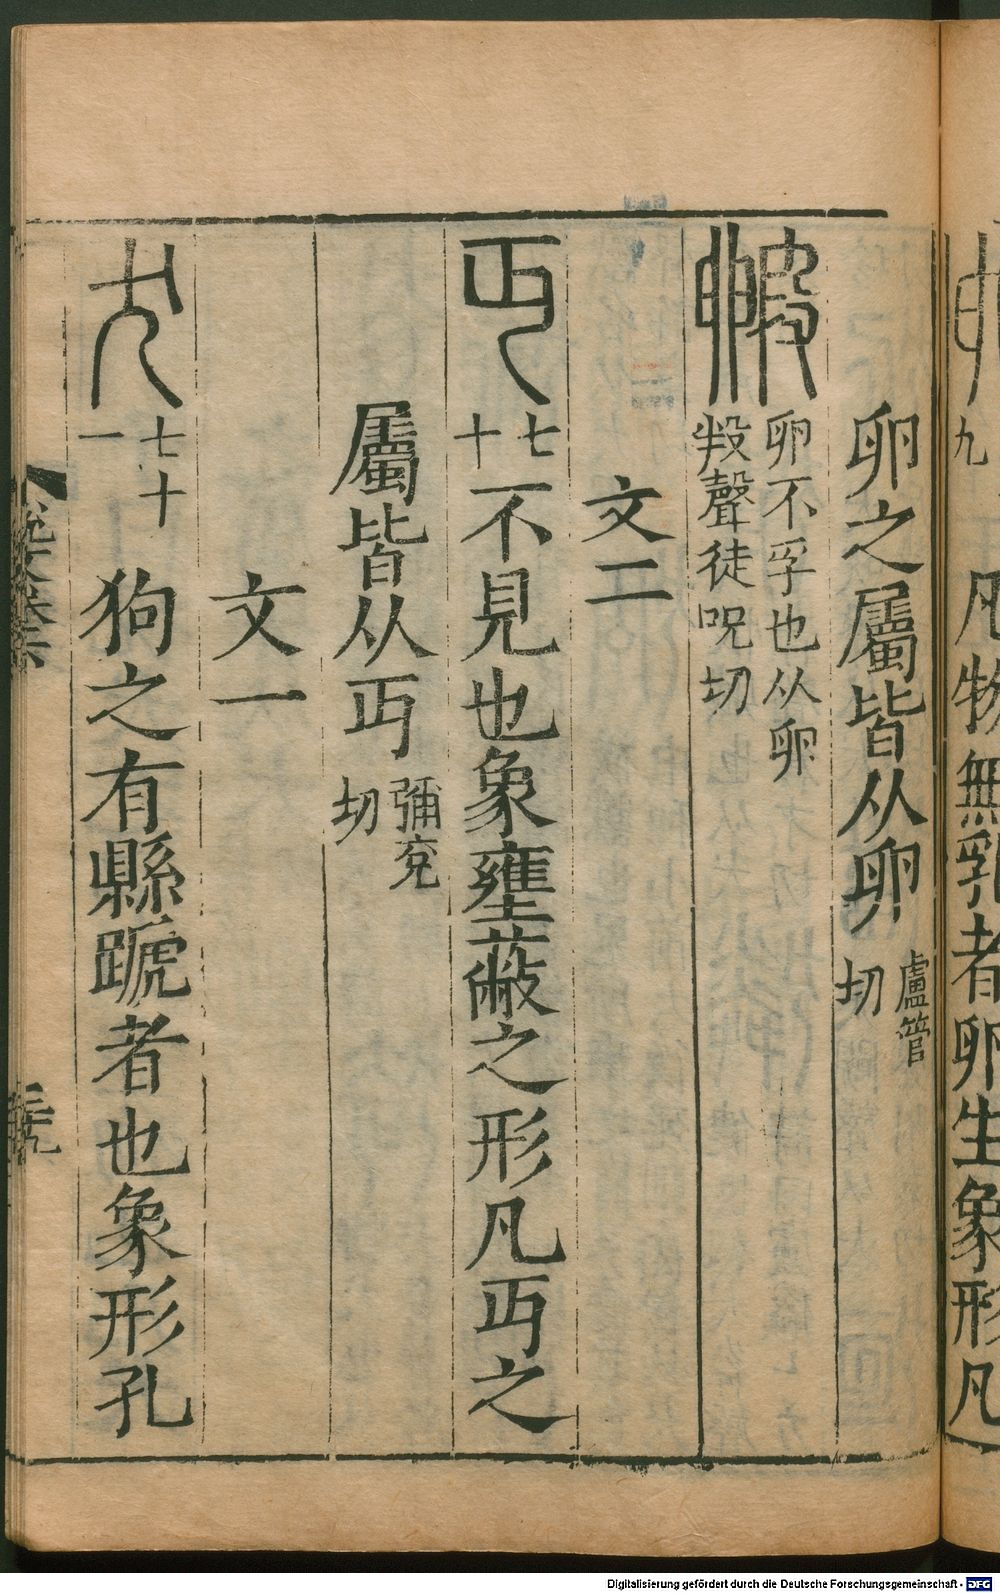 九
凡物無乳者卵生象形凡
卵之屬皆从卵盧管切
毈卵不孚也从卵
段聲徒玩切
文二
丏七十不見也象壅蔽之形凡丏之
屬皆从丏彌兖切
文一
犬七十一狗之有縣蹏者也象形孔
三十九
Digitalisierung gefördert durch die Deutsche Forschungsgemeinschaft - DFG